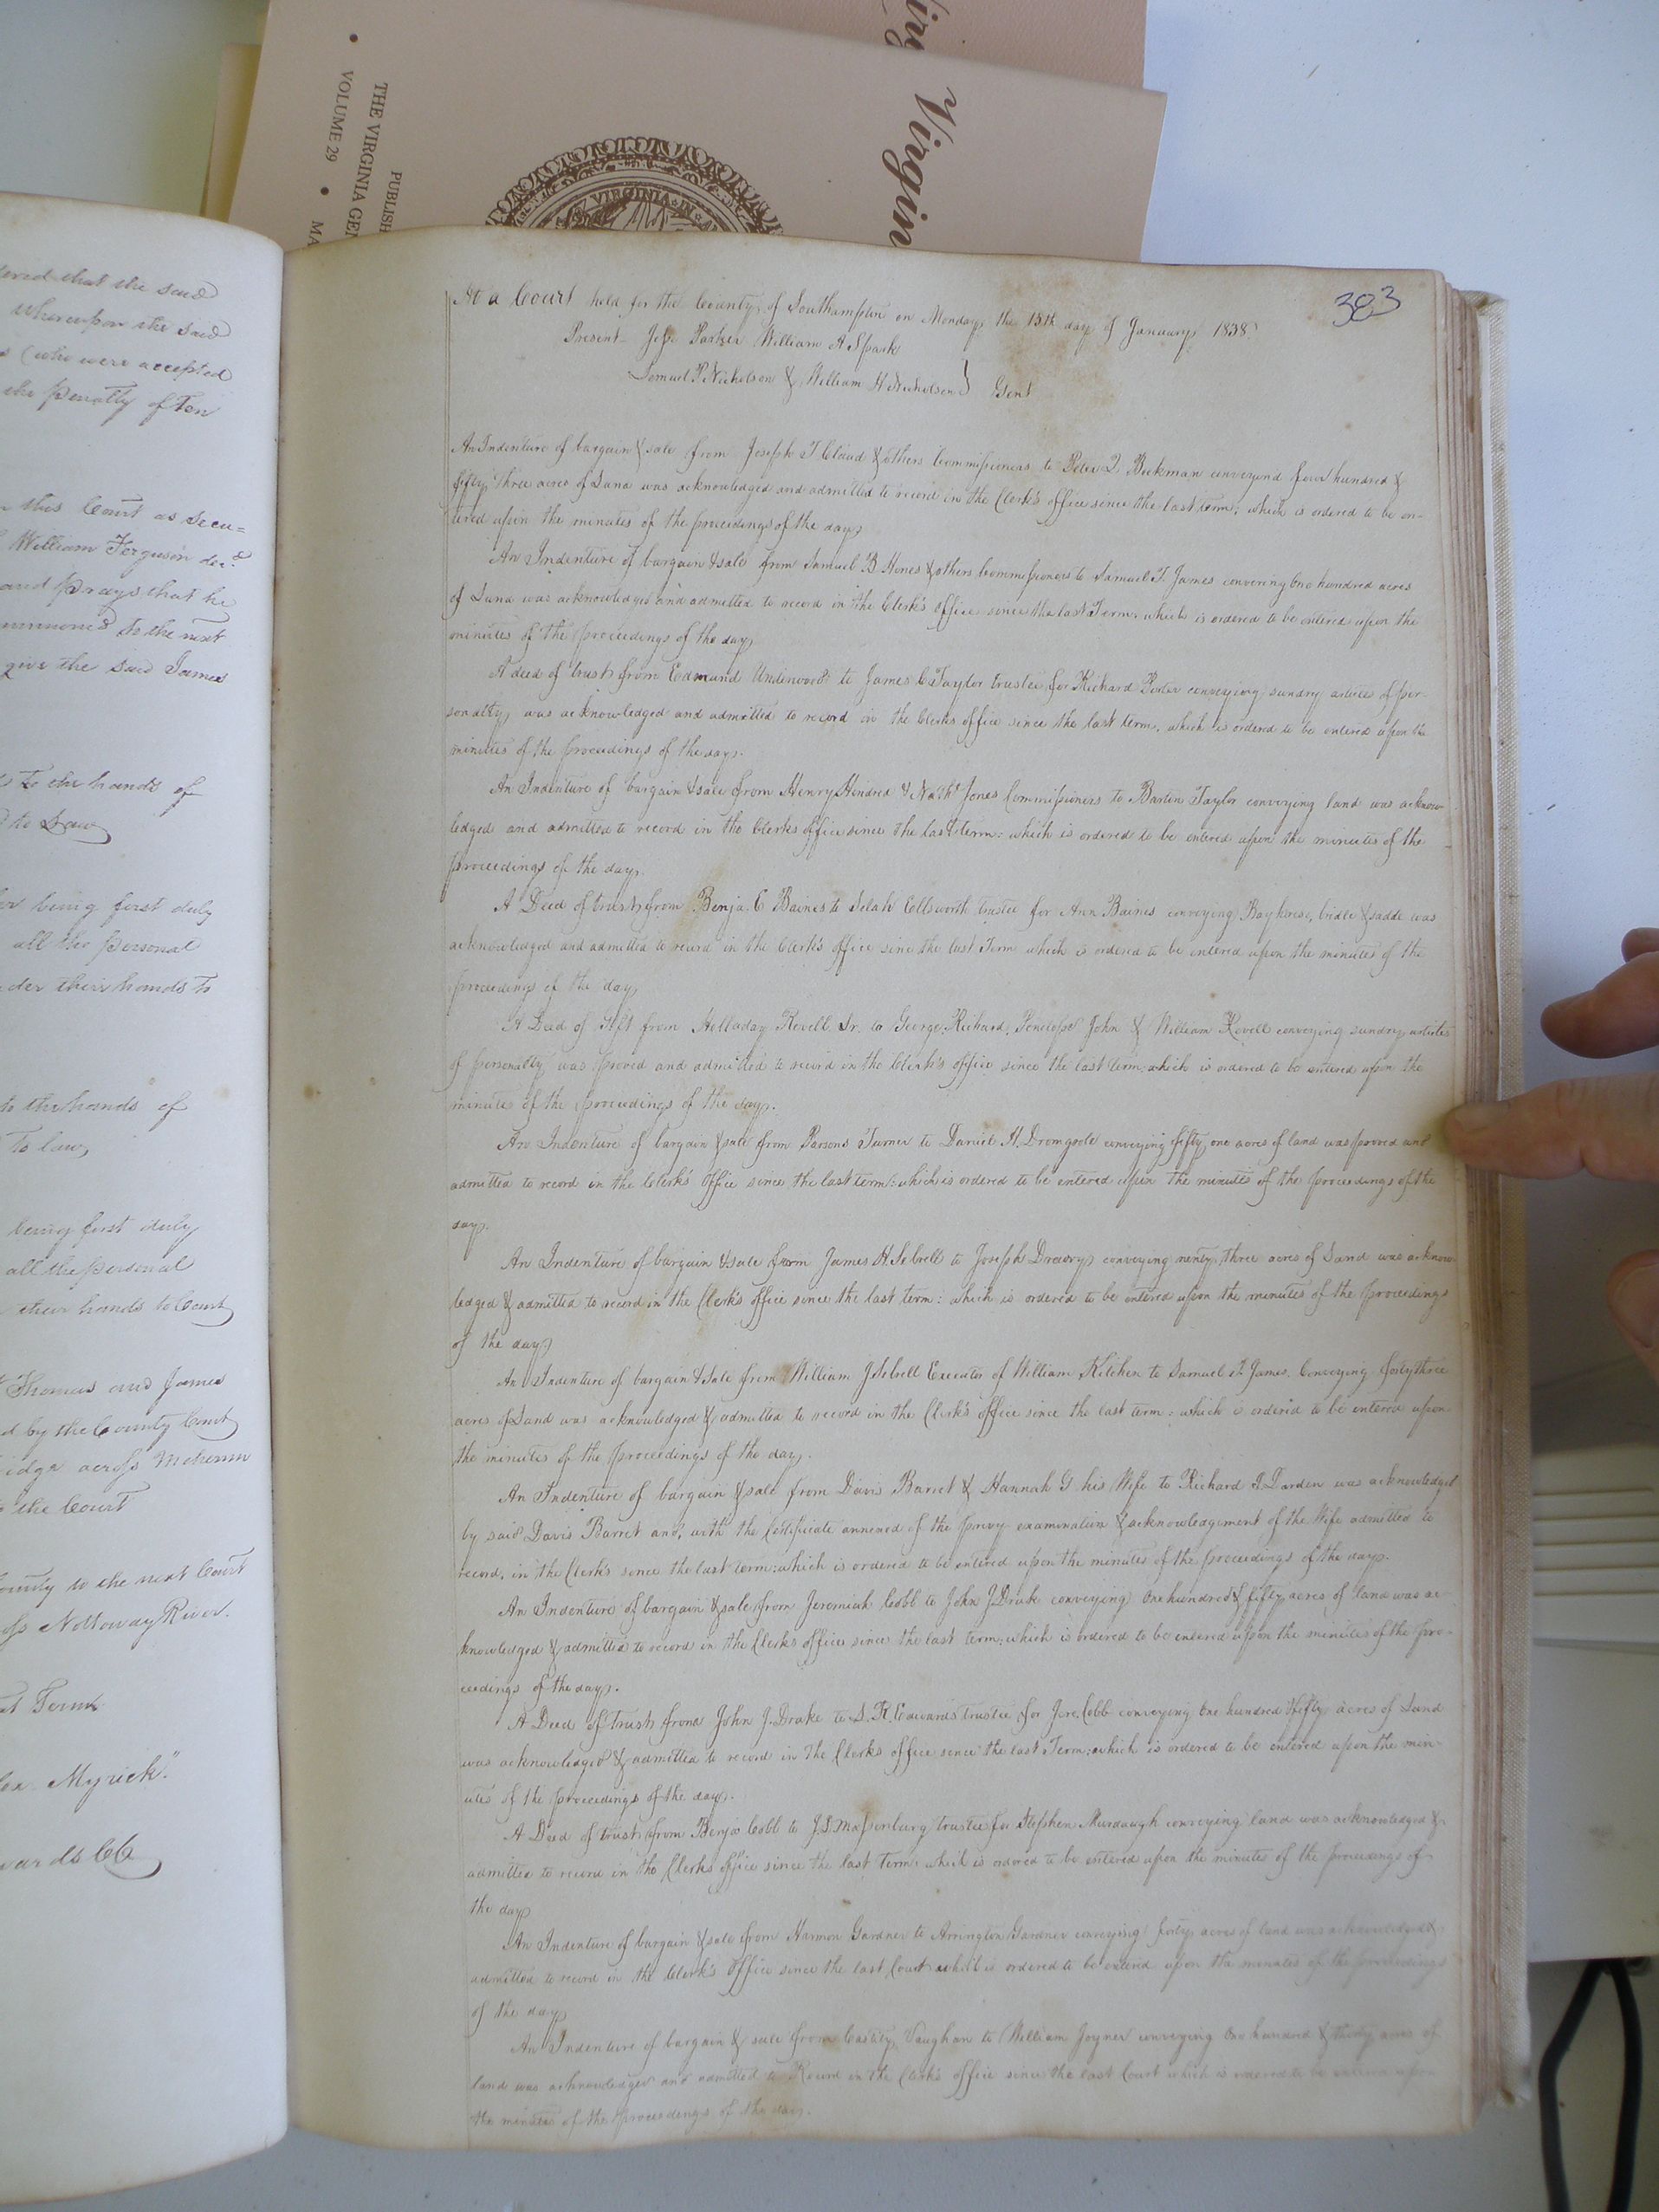 Virgin
PUBLISH
THE VIRGINIA GEN
VOLUME 29 • MA
VIRGINIA IN
383
At a Court held for the County of Southampton on Monday the 15th day of January 1838
Present Jas. Parker William A Spark
Samuel P Nicholson & William H Nicholson } Gent
An Indenture of bargain & sale from Joseph T Claud & others Commissioners to Peter Beckman conveyind four hundred &
fifty three acres of Land was acknowledged and admitted to record in the Clerk's office since the last term; which is ordered to be en-
tered upon the minutes of the proceedings of the day
An Indenture of bargain & sale from Samuel B Hines & others Commissioners to Samuel T. James conveying One hundred acres
of Land was acknowledged and admitted to record in the Clerk's office since the last Term: which is ordered to be entered upon the
minutes of the proceedings of the day
A deed of trust from Edmund Underwood to James C Taylor trustee for Richard Porter conveying sundry articles of per-
sonalty, was acknowledged and admitted to record in the Clerks office since the last term, which is ordered to be entered upon the
minutes of the proceedings of the day.
An Indenture of bargain & sale from Henry Hindred & Nath' Jones Commissioners to Bastin Taylor conveying land was acknow-
ledged and admitted to record in the Clerks office since the last term: which is ordered to be entered upon the minutes of the
proceedings of the day.
A Deed of trust from Benja. E Baines to Selah Ellsworth trustee for Ann Baines conveying Bay horse, bridle & saddle was
acknowledged and admitted to record in the Clerk's office since the last Term which is ordered to be entered upon the minutes of the
proceedings of the day
A Deed of Gift from Holladay Revell Sr. to George, Richard, Penelope John & William Revell conveying sundry articles
of personalty was proved and admitted to record in the Clerk's office since the last term; which is ordered to be entered upon the
minutes of the proceedings of the day.
An Indenture of bargain & sale from Parsons Turner to Daniel H. Dromgoole conveying fifty one acres of land was proved and
admitted to record in the Clerk's Office since the last term: which is ordered to be entered upon the minutes of the proceedings of the
day.
An Indenture of bargain & sale from James H. Sebrell to Joseph Drewry conveying ninety three acres of Land was acknow-
ledged & admitted to record in the Clerk's office since the last term: which is ordered to be entered upon the minutes of the proceedings
of the day
An Indenture of bargain & sale from William J Sebrell Executor of William Kitchen to Samuel T. James Conveying forty three
acres of Land was acknowledged & admitted to record in the Clerk's office since the last term: which is ordered to be entered upon
the minutes of the proceedings of the day.
An Indenture of bargain & sale from Davis Barret & Hannah G his Wife to Richard T. Darden was acknowledged
by said Davis Barret and, with the Certificate annexed of the privy examination & acknowledgement of the Wife admitted to
record, in the Clerk's since the last term: which is ordered to be entered upon the minutes of the proceedings of the day.
An Indenture of bargain & sale from Jeremiah Cobb to John J. Drake conveying One hundred & fifty acres of land was ac-
knowledged & admitted to record in the Clerks office since the last term; which is ordered to be entered upon the minutes of the pro-
ceedings of the day.
A Deed of Trust from John J. Drake to S. K. Edwards trustee for Jere. Cobb conveying One hundred & fifty acres of Land
was acknowledged & admitted to record in The Clerks office since the last Term: which is ordered to be entered upon the min-
utes of the proceedings of the day.
A Deed of trust from Benja Cobb to J. S. Massenburg trustee for Stephen Murdaugh conveying land was acknowledged &
admitted to record in the Clerks office since the last Term: which is ordered to be entered upon the minutes of the proceedings of
the day
An Indenture of bargain & sale from Harmon Gardner to Arrington Gardner conveying forty acres of land was acknowledged &
admitted to record in the Clerk's Office since the last Court which is ordered to be entered upon the minutes of the proceedings
of the day
An Indenture of bargain & sale from Vaughan to William Joyner conveying One hundred & thirty acres of
land was acknowledged and admitted to Record in the Clerk's office since the last Court which is ordered to be entered upon
the minutes of the proceedings of the day.
dered that the said
whereupon the said
(who were accepted
the penalty of Ten
this Court as Secu=
William Ferguson dec.d
and prays that he
summoned to the next
give the said James
to the hands of
to Law
being first duly
all the personal
der their hands to
to the hands of
To law
being first duly
all the personal
their hands to Court
Thomas and James
d by the County Court
idge across Meherrin
the Court
County to the next Court
Nottoway River.
Term
Myrick"
wards CC